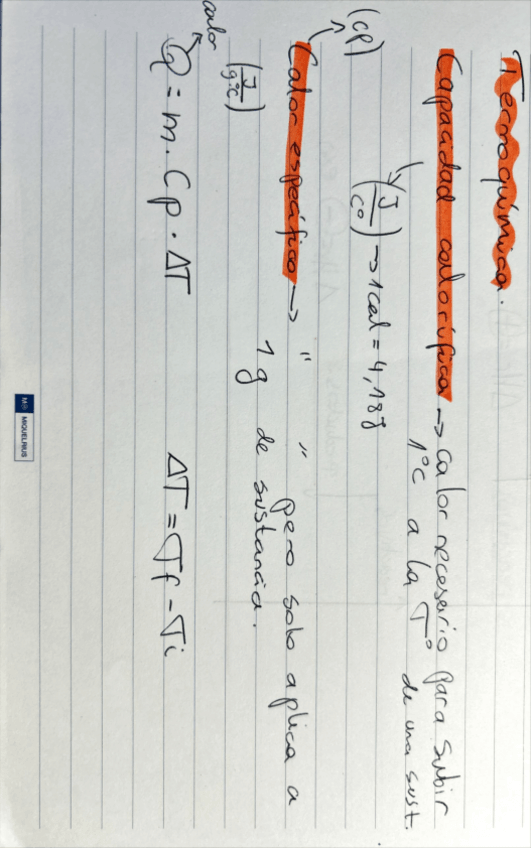 Termoquímica.
Capacidad calorífica → calor necesario para subir
1°C a la T° de una sust.
(J/C°) → 1cal = 4,18J
(Cp)
Calor específico → " " pero solo aplica a
1g de sustancia.
(J/g·°C)
calor
Q = m · Cp · ΔT ΔT = Tf - Ti
MR MIQUELRIUS